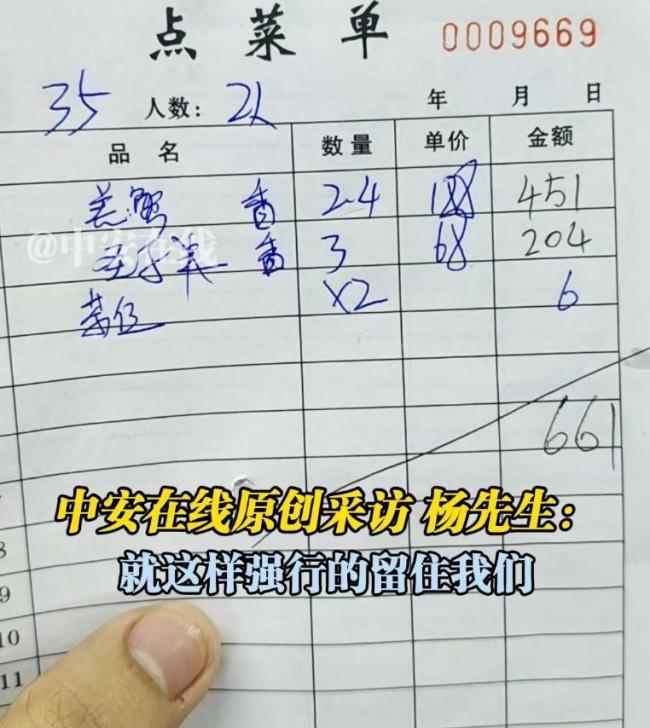 点菜单 0009669
35 人数: 2人 年 月 日
品名 数量 单价 金额
羔蟹 香 2.4 188 451
香 3 68 204
茶位 X2 6
661
@中安在线
中安在线原创采访 杨先生:
就这样强行的留住我们
8
9
10
11